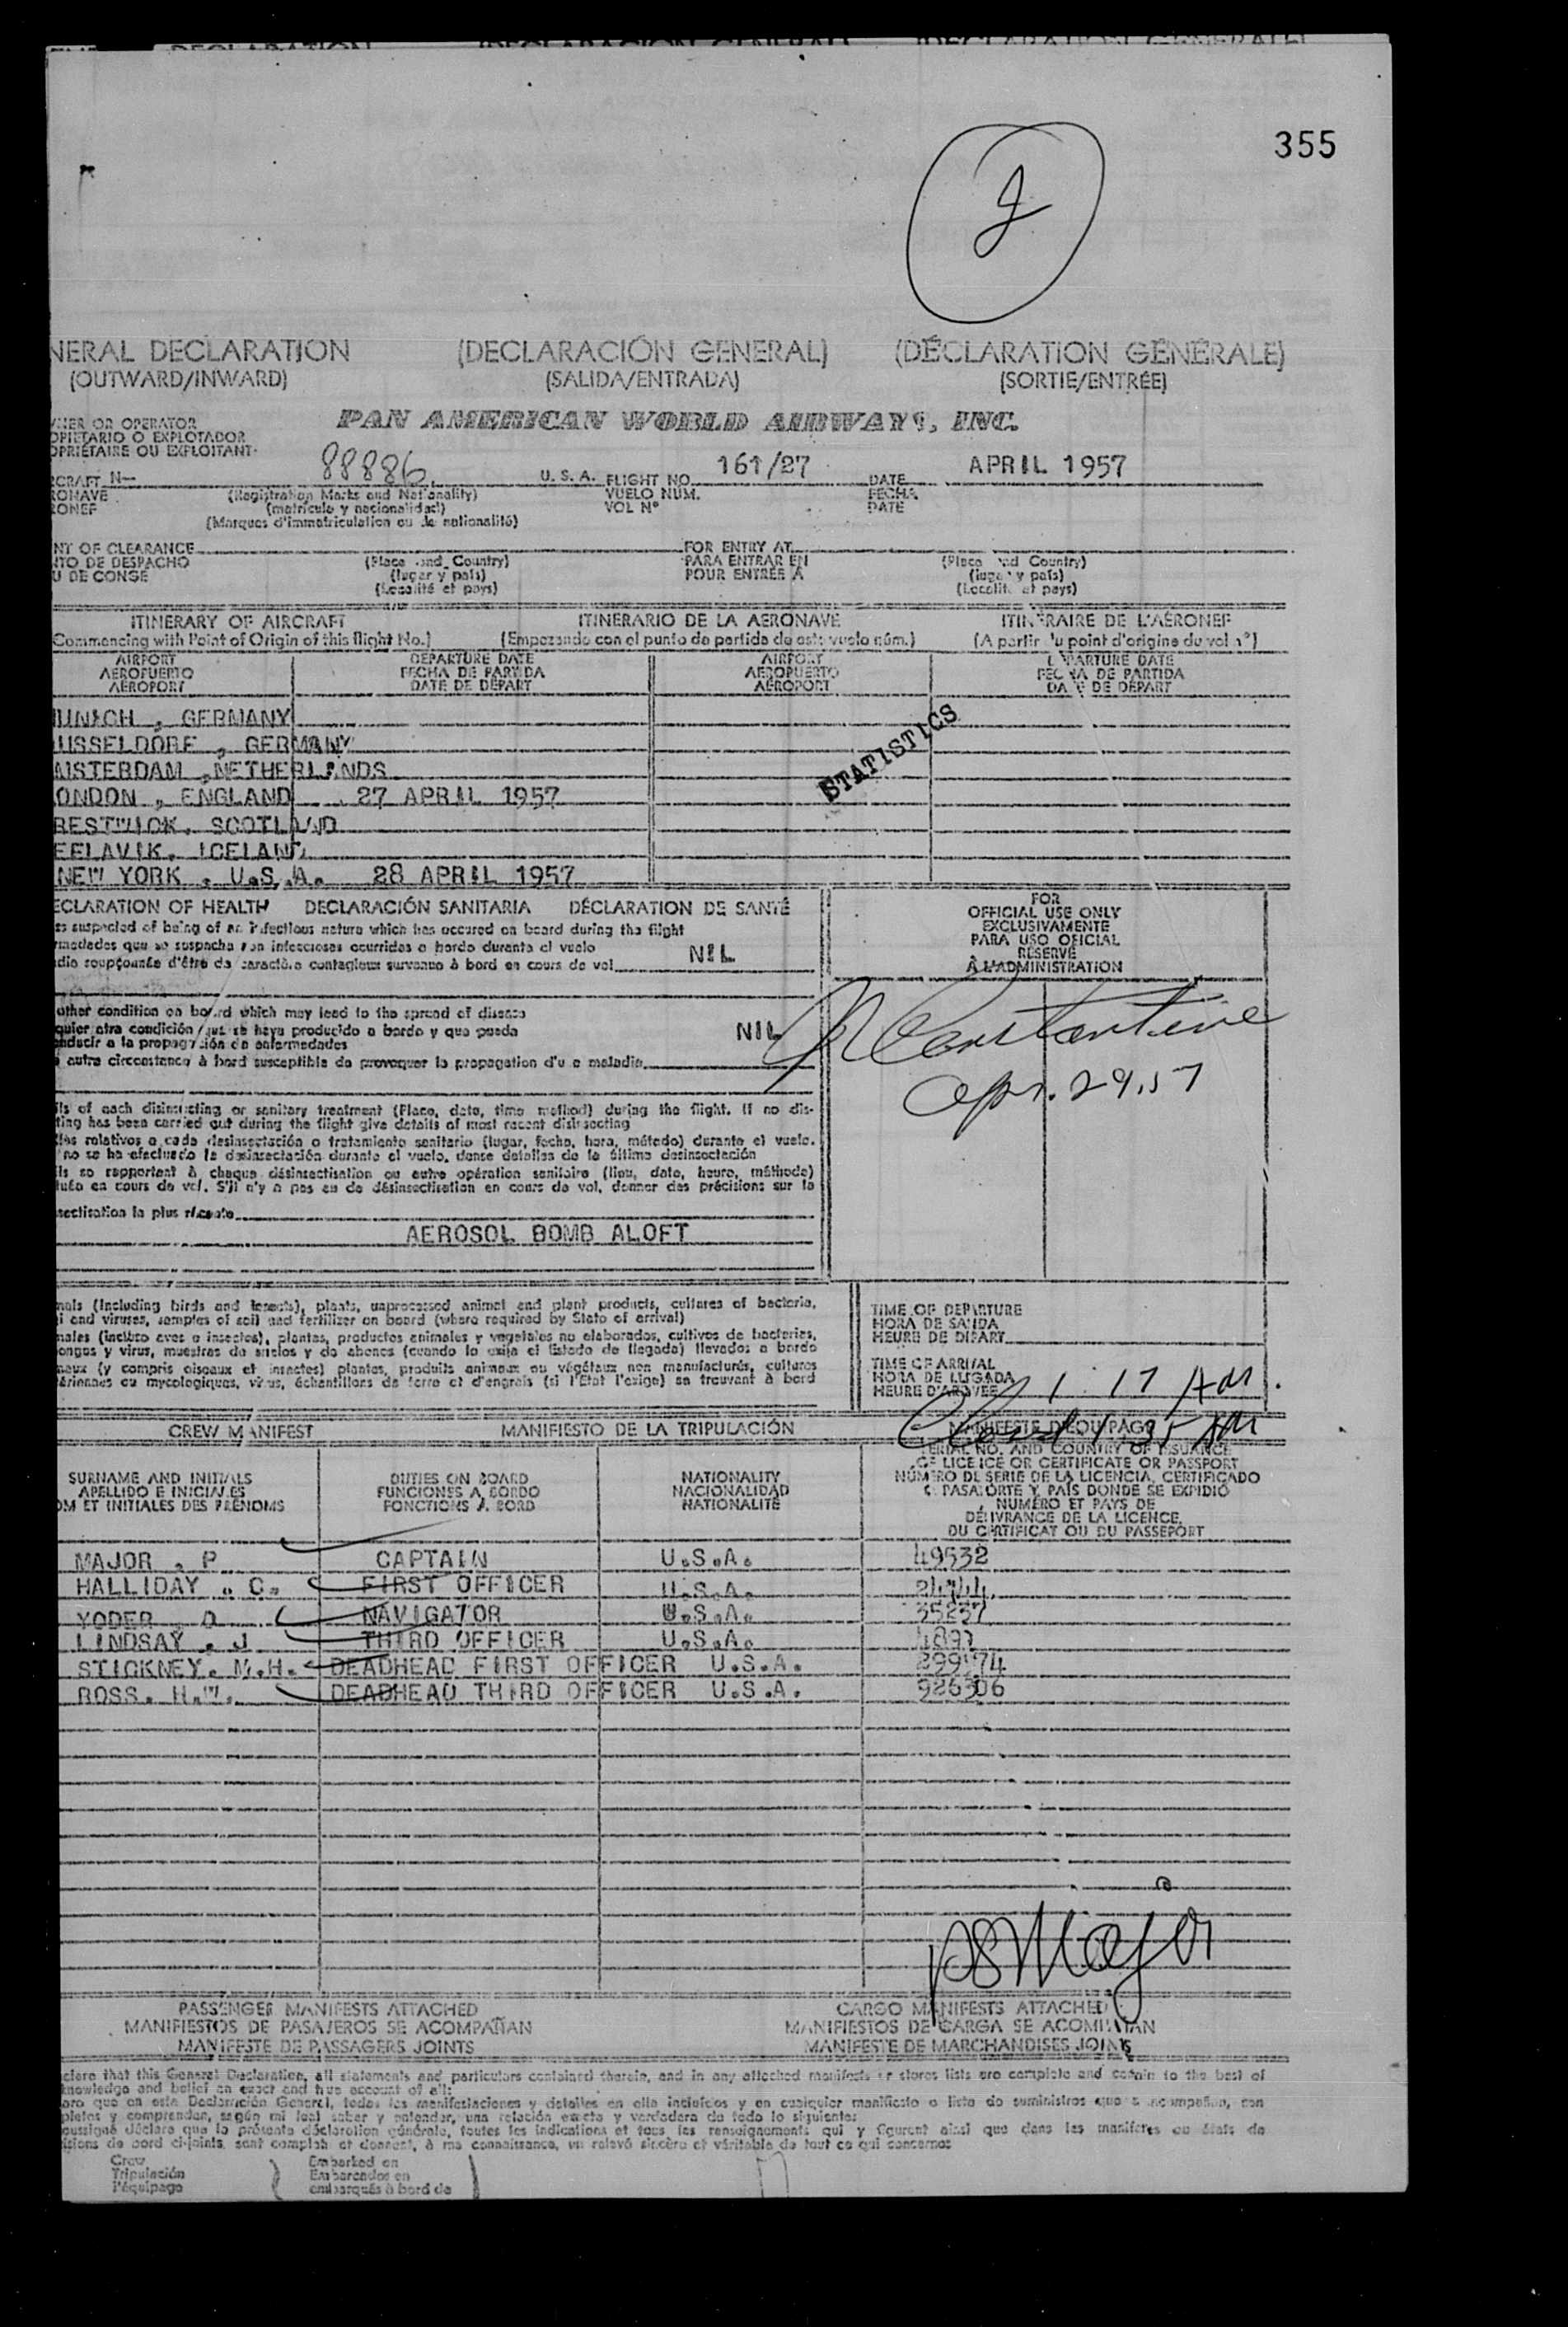 355
NERAL DECLARATION (DECLARACIÓN GENERAL) (DÉCLARATION GÉNÉRALE)
(OUTWARD/INWARD) (SALIDA/ENTRADA) (SORTIE/ENTRÉE)
NER OR OPERATOR PAN AMERICAN WORLD AIRWAYS, INC.
OPIETARIO O EXPLOTADOR
OPRIÉTAIRE OU EXPLOITANT
CRAFT N- 88886 U. S. A. FLIGHT NO. 161/27 DATE APRIL 1957
RONAVE (Registration Marks and Nationality) VUELO NUM. FECHA
RONEF (matricula y nacionalidad) VOL Nº DATE
(Marques d'immatriculation ou de nationalité)
NT OF CLEARANCE FOR ENTRY AT
NTO DE DESPACHO (Place and Country) PARA ENTRAR EN (Place and Country)
U DE CONGE (lugar y país) POUR ENTRÉE À (lugar y país)
(Localité et pays) (Localité et pays)
ITINERARY OF AIRCRAFT ITINERARIO DE LA AERONAVE ITINÉRAIRE DE L'AÉRONEF
Commencing with Point of Origin of this flight No.) (Empezando con el punto de partida de este vuelo núm.) (A partir du point d'origine du vol nº)
AIRPORT DEPARTURE DATE AIRPORT DEPARTURE DATE
AEROPUERTO FECHA DE PARTIDA AEROPUERTO FECHA DE PARTIDA
AÉROPORT DATE DE DÉPART AÉROPORT DATE DE DÉPART
UNICH , GERMANY
USSELDORF , GERMANY
MSTERDAM ,NETHERLANDS
STATISTICS
ONDON , ENGLAND 27 APRIL 1957
RESTWICK, SCOTLAND
EFLAVIK, ICELAND
NEW YORK , U.S.A. 28 APRIL 1957
ECLARATION OF HEALTH DECLARACIÓN SANITARIA DÉCLARATION DE SANTÉ
FOR
OFFICIAL USE ONLY
EXCLUSIVAMENTE
PARA USO OFICIAL
RÉSERVÉ
À L'ADMINISTRATION
es suspected of being of an infectious nature which has occured on board during the flight
rmedades que se sospecha son infecciosas ocurridas a bordo durante el vuelo
die soupçonnée d'être de caractère contagieux survenue à bord en cours de vol NIL
other condition on board which may lead to the spread of disease
quier otra condición que se haya producido a bordo y que pueda NIL
nducir a la propagación de enfermedades
autre circonstance à bord susceptible de provoquer la propagation d'une maladie
Constantine
Apr. 29. 57
ils of each disinsecting or sanitary treatment (Place, date, time method) during the flight. If no dis-
ting has been carried out during the flight give details of most recent disinsecting
lles relativos a cada desinsectación o tratamiento sanitario (lugar, fecha, hora, método) durante el vuelo.
no se ha efectuado la desinsectación durante el vuelo, dense detalles de la última desinsectación
ils se rapportent à chaque désinsectisation ou autre opération sanitaire (lieu, date, heure, méthode)
tuée en cours de vol. S'il n'y a pas eu de désinsectisation en cours de vol, donner des précisions sur la
sectisation la plus récente
AEROSOL BOMB ALOFT
mals (including birds and insects), plants, unprocessed animal and plant products, cultures of bacteria,
i and viruses, samples of soil and fertilizer on board (where required by State of arrival)
males (incluso aves e insectos), plantas, productos animales y vegetales no elaborados, cultivos de bacterias,
ongos y virus, muestras de suelos y de abonos (cuando lo exija el Estado de llegada) llevados a bordo
maux (y compris oiseaux et insectes) plantes, produits animaux ou végétaux non manufacturés, cultures
ériennes ou mycologiques, virus, échantillons de terre et d'engrais (si l'Etat l'exige) se trouvant à bord
TIME OF DEPARTURE
HORA DE SALIDA
HEURE DE DÉPART
TIME OF ARRIVAL
HORA DE LLEGADA
HEURE D'ARRIVÉE 1:17 AM
1:35 AM
CREW MANIFEST MANIFIESTO DE LA TRIPULACIÓN MANIFESTE D'ÉQUIPAGE
SURNAME AND INITIALS DUTIES ON BOARD NATIONALITY
APELLIDO E INICIALES FUNCIONES A BORDO NACIONALIDAD
OM ET INITIALES DES PRÉNOMS FONCTIONS À BORD NATIONALITÉ
SERIAL NO. AND COUNTRY OF ISSUANCE
OF LICENCE OR CERTIFICATE OR PASSPORT
NÚMERO DE SERIE DE LA LICENCIA, CERTIFICADO
O PASAPORTE Y PAÍS DONDE SE EXPIDIÓ
NUMÉRO ET PAYS DE
DÉLIVRANCE DE LA LICENCE,
DU CERTIFICAT OU DU PASSEPORT
MAJOR , P CAPTAIN U.S.A. 49532
HALLIDAY , C. FIRST OFFICER U.S.A.
YODER , O NAVIGATOR U.S.A. 35237
LINDSAY , J THIRD OFFICER U.S.A.
STICKNEY, M.H. DEADHEAD FIRST OFFICER U.S.A.
ROSS, H.W. DEADHEAD THIRD OFFICER U.S.A. 926306
PS Major
PASSENGER MANIFESTS ATTACHED CARGO MANIFESTS ATTACHED
MANIFIESTOS DE PASAJEROS SE ACOMPAÑAN MANIFIESTOS DE CARGA SE ACOMPAÑAN
MANIFESTE DE PASSAGERS JOINTS MANIFESTE DE MARCHANDISES JOINTS
clare that this General Declaration, all statements and particulars contained therein, and in any attached manifests or stores lists are complete and certain to the best of
knowledge and belief an exact and true account of all:
aro que en esta Declaración General, todas las manifestaciones y detalles en ella incluidos y en cualquier manifiesto o lista de suministros que se acompañan, son
pletos y comprenden, según mi leal saber y entender, una relación exacta y verdadera de todo lo siguiente:
oussigné déclare que la présente déclaration générale, toutes les indications et tous les renseignements qui y figurent ainsi que dans les manifetes ou états de
isions de bord ci-joints, sont complets et donnent, à ma connaissance, un relevé sincère et véritable de tout ce qui concerne:
Crew Embarked on
Tripulación Embarcados en
l'équipage embarqués à bord de